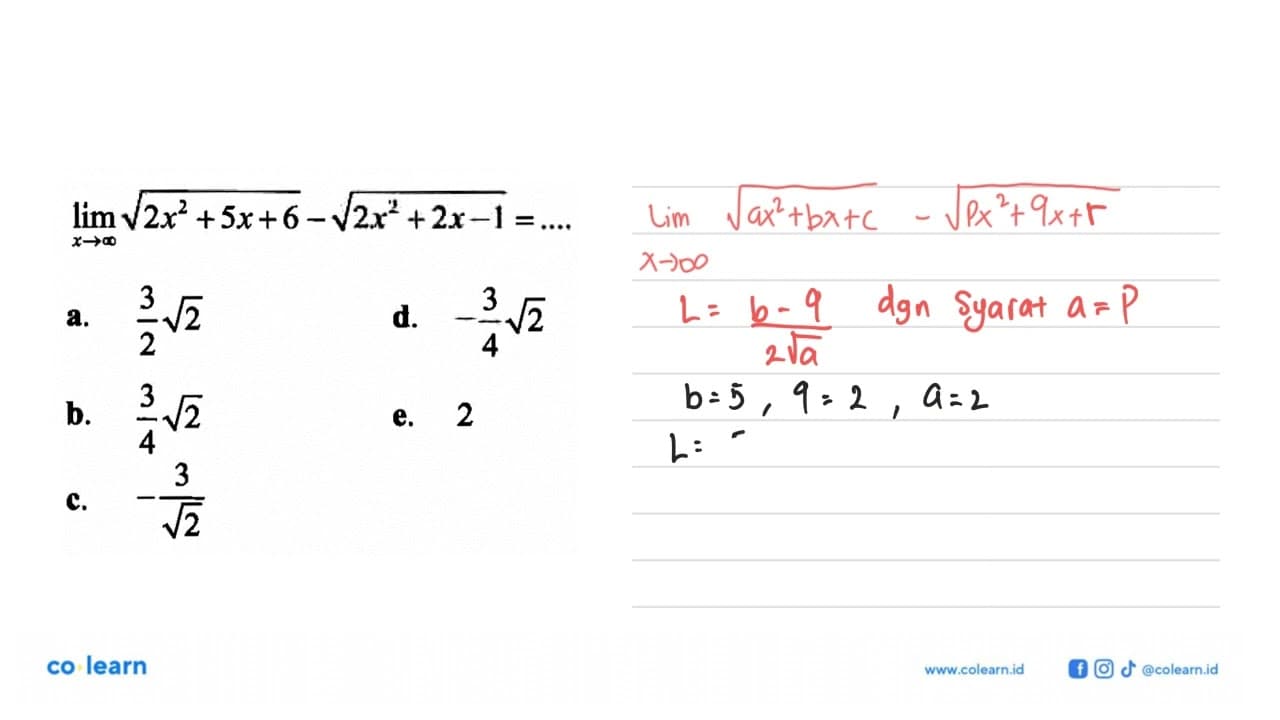 lim x→∞ √(2x² + 5x + 6) − √(2x² + 2x − 1) = ....
a. 3/2 √2
b. 3/4 √2
c. −3/√2
d. −3/4 √2
e. 2
Lim x→∞ √(ax²+bx+c) − √(Px²+qx+r)
L = (b − q)/(2√a) dgn Syarat a = P
b = 5 , q = 2 , a = 2
L =
co learn
www.colearn.id @colearn.id